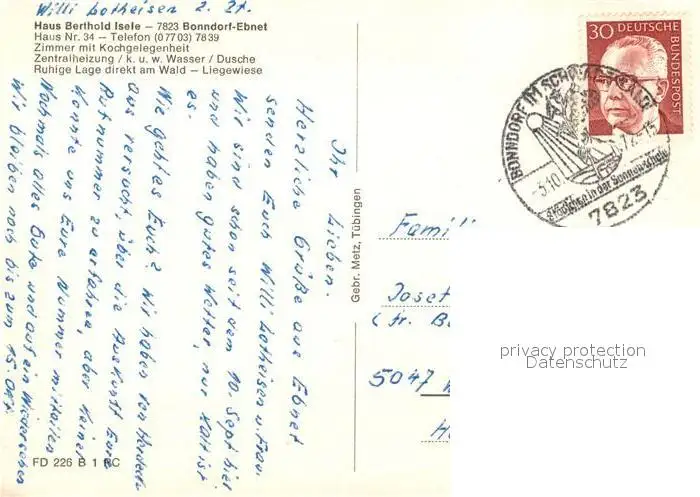 Willi Lotheisen z. Zt.
Haus Berthold Isele – 7823 Bonndorf-Ebnet
Haus Nr. 34 – Telefon (07703) 7839
Zimmer mit Kochgelegenheit
Zentralheizung / k. u. w. Wasser / Dusche
Ruhige Lage direkt am Wald – Liegewiese
Ihr Lieben.
Herzliche Grüße aus Ebnet
senden Euch Willi Lotheisen u. Frau.
Wir sind schon seit dem 10. Sept hier
und haben gutes Wetter, nur kalt ist
es.
Wie geht es Euch? Wir haben von
aus versucht, über die Auskunft Eure
Rufnummer zu erfahren, aber keiner
konnte uns Eure Nummer mitteilen
Nochmals alles Gute und auf ein Wiedersehen
Wir bleiben noch bis zum 15. Okt.
FD 226 B 1 RC
Gebr. Metz, Tübingen
30
DEUTSCHE BUNDESPOST
BONNDORF IM SCHWARZWALD
-5.10.
7823
Famili
Josef
(fr. B
5047
privacy protection
Datenschutz